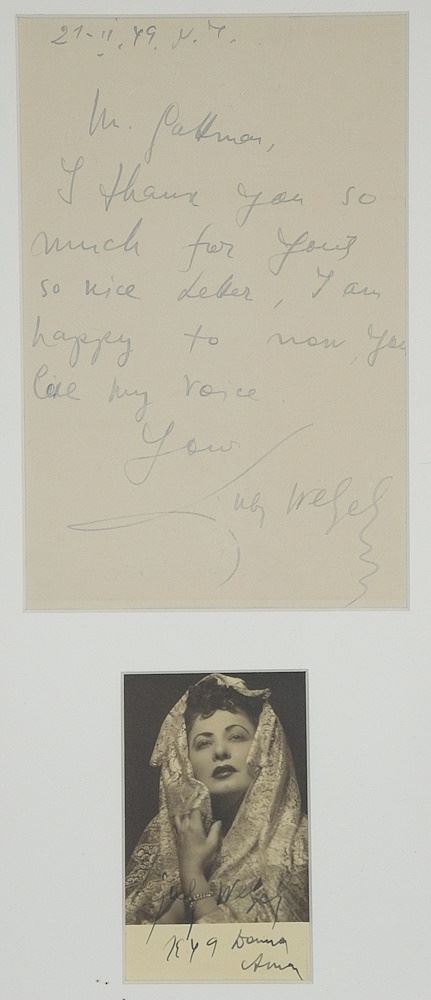 21-II.49 N.Y.
Mr. Gattman,
I thank you so
much for your
so nice Letter, I am
happy to now, you
like my voice
Your
Ljuba Welitsch
Ljuba Welitsch
1949 Donna
Anna